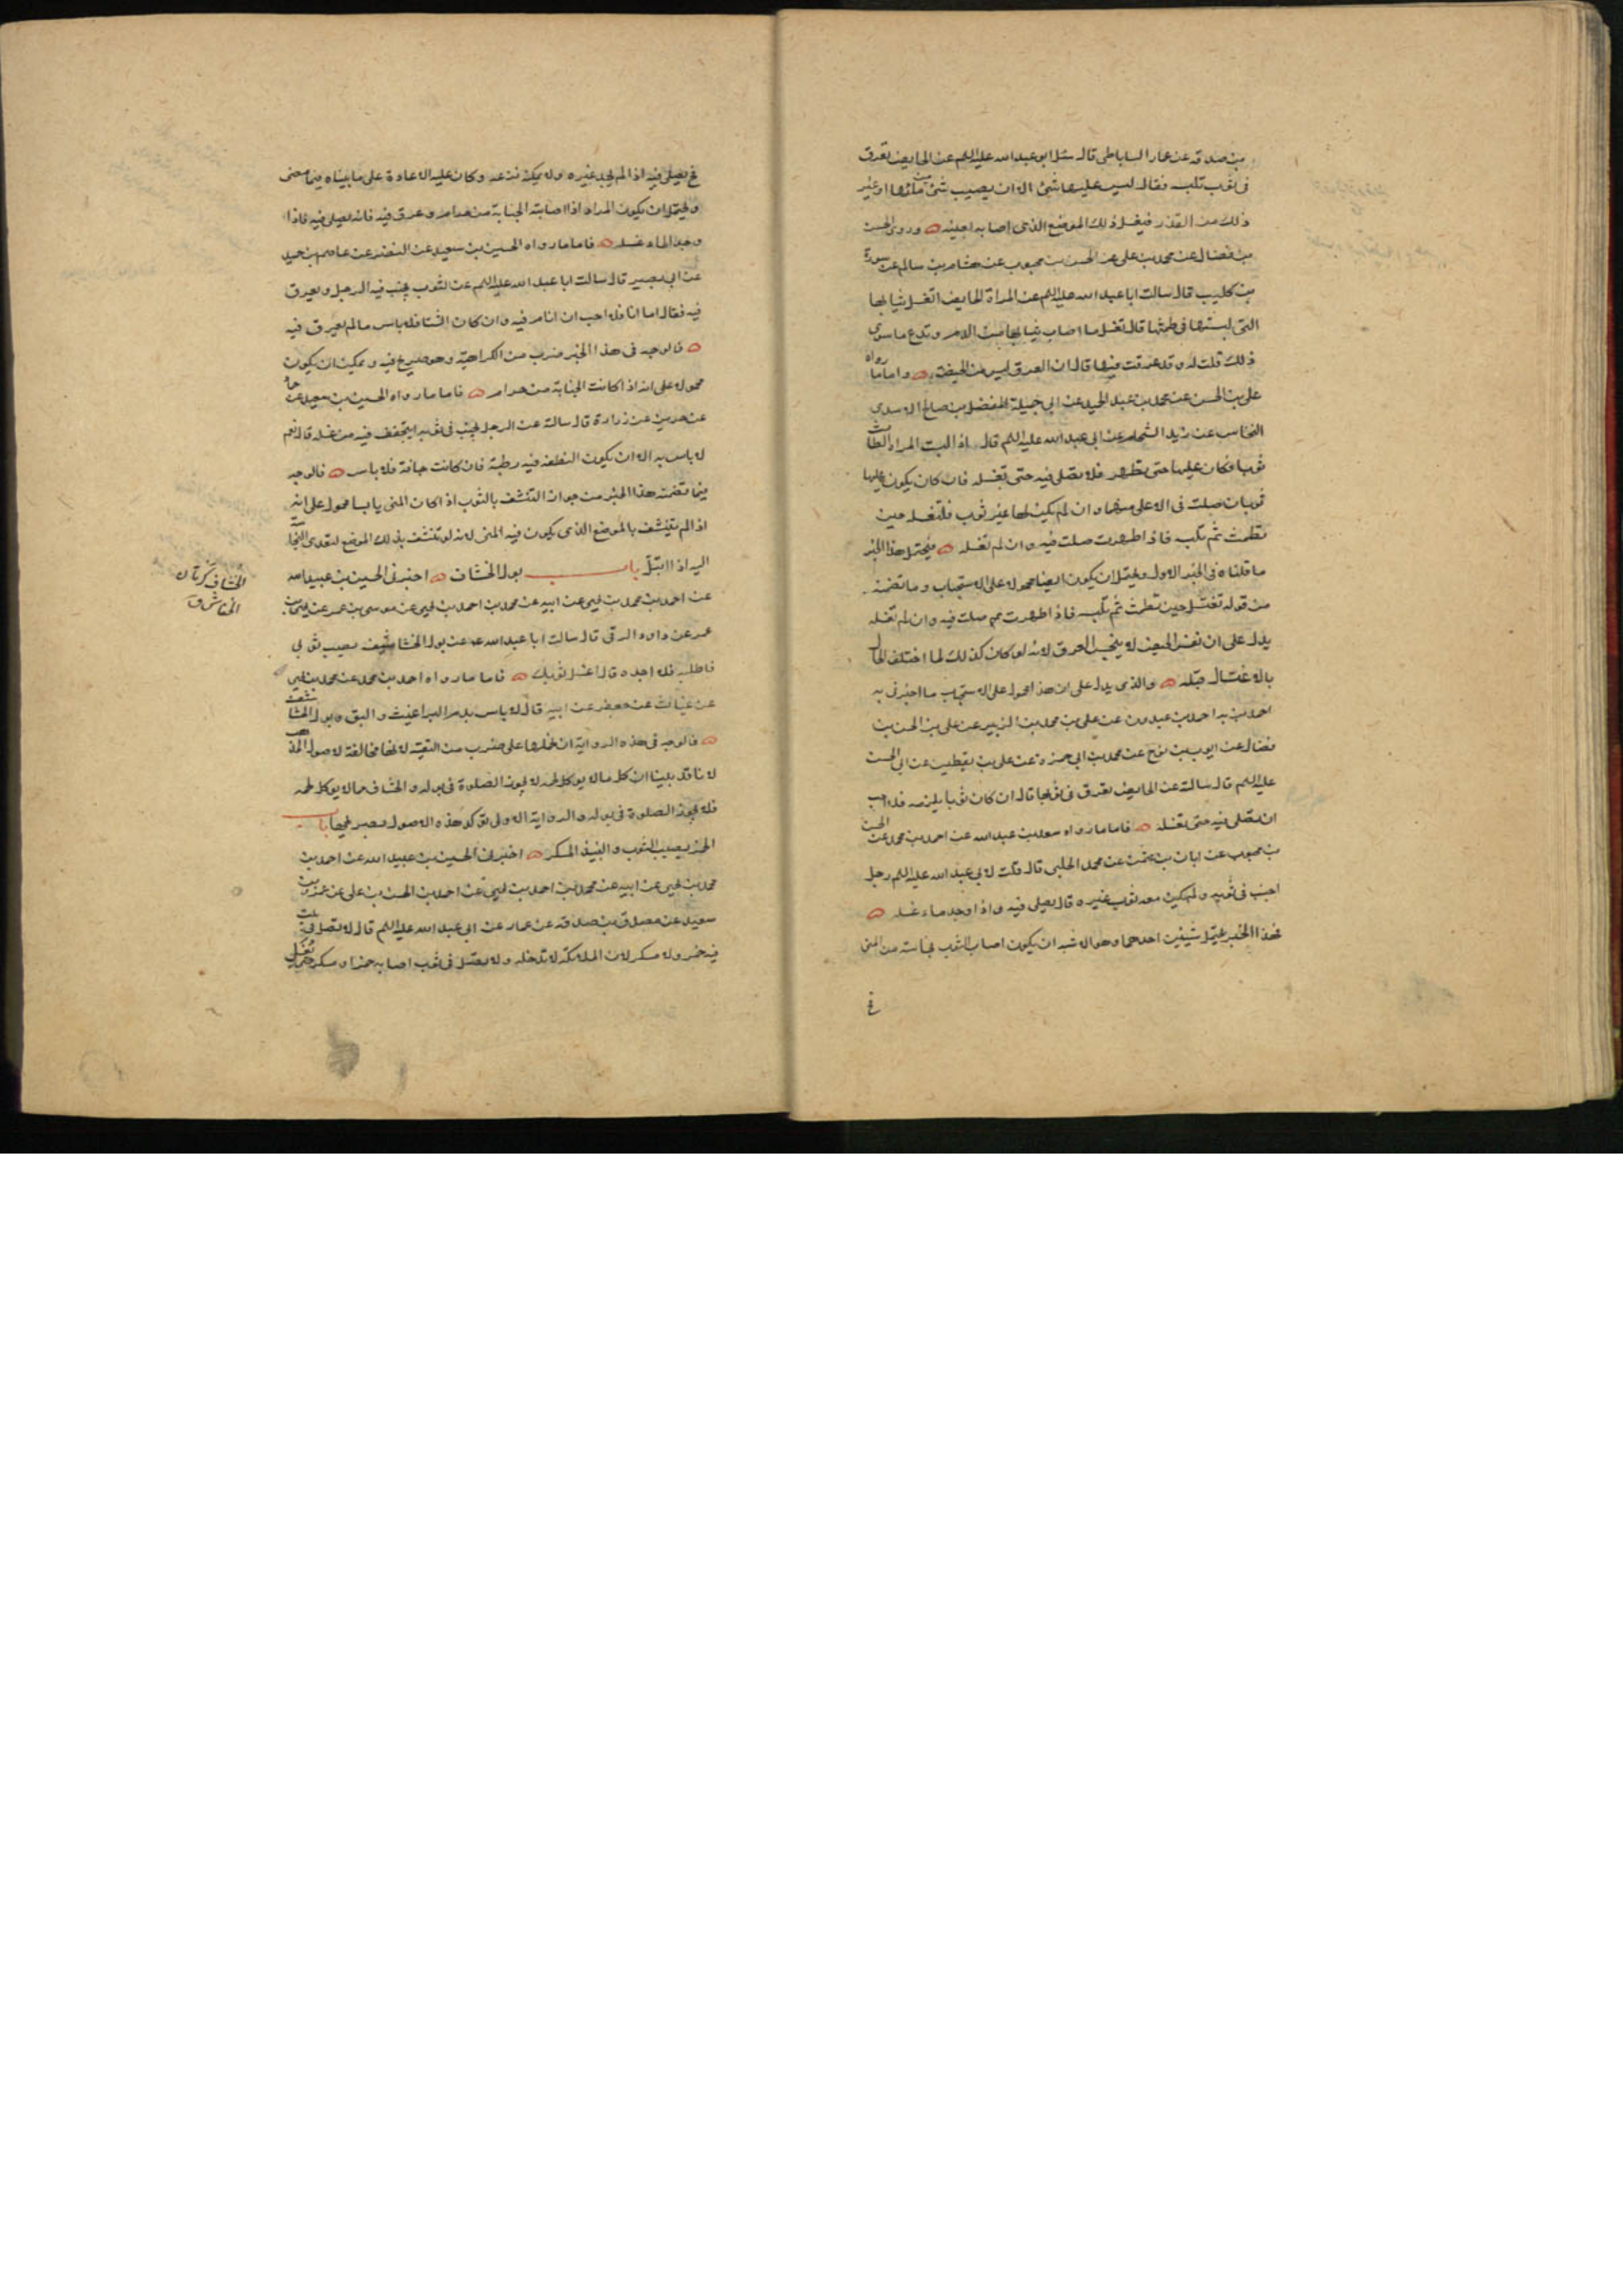 بن صدقه عن عمار الساباطى قال سئل ابو عبدالله عليه السلم عن الحايض تعرق
فى ثوب تلبسه فقال ليس عليها شئ الا ان يصيب شئ من مائها او غير
ذلك من القذر فيغسل ذلك الموضع الذى اصابه بعينه وروى الحسن
بن فضال عن محمد بن على عن الحسن بن محبوب عن هشام بن سالم عن سورة
بن كليب قال سالت ابا عبدالله عليه السلم عن المراة الحايض اتغسل ثيابها
التى لبستها فى طمثها قال تغسل ما اصاب ثيابها من الدم وتدع ما سوى
ذلك قلت له وقد عرقت فيها قال ان العرق ليس من الحيضة واما ما رواه
على بن الحسن عن محمد بن عبد الحميد عن ابى جميلة المفضل بن صالح الاسدى
النخاس عن زيد الشحام عن ابى عبدالله عليه السلم قال اذا لبست المراة الطامث
ثوبا فكان عليها حتى تطهر فلا تصلى فيه حتى تغسله فان كان يكون عليها
ثوبان صلت فى الاعلى منهما وان لم يكن لها غير ثوب فلتغسله حين
تطمث ثم تلبسه فاذا طهرت صلت فيه وان لم تغسله فيحتمل هذا الخبر
ما قلناه فى الخبر الاول ويحتمل ان يكون ايضا محمولا على الاستحباب وما تضمنه
من قوله تغتسل حين تطمث ثم تلبسه فاذا طهرت صلت فيه وان لم تغسله
يدل على ان نفس الحيض لا ينجس العرق لانه لو كان كذلك لما اختلف الحال
بالاغتسال قبله والذى يدل على ان هذا محمول على الاستحباب ما اخبرنى به
احمد بن عبدون عن على بن محمد بن الزبير عن على بن الحسن بن
فضال عن ايوب بن نوح عن محمد بن ابى حمزة عن على بن يقطين عن ابى الحسن
عليه السلم قال سالته عن الحايض تعرق فى ثوبها قال ان كان ثوبا يلزمه فلا احب
ان تصلى فيه حتى تغسله فاما ما رواه سعد بن عبدالله عن احمد بن محمد عن الحسن
بن محبوب عن ابان بن عثمن عن محمد الحلبى قال قلت لابى عبدالله عليه السلم رجل
اجنب فى ثوبه ولم يكن معه ثوب غيره قال يصلى فيه واذا وجد ماء غسله
فهذا الخبر يحتمل شيئين احدهما وهو الاشبه ان يكون اصاب الثوب نجاسة من المنى
فح يصلى فيه اذا لم يجد غيره ولا يمكنه نزعه وكان عليه الاعادة على ما بيناه فيما مضى
ويحتمل ان يكون المراد اذا اصابته الجنابة من حرام وعرق فيه فانه يصلى فيه فاذا
وجد الماء غسله فاما ما رواه الحسين بن سعيد عن النضر عن عاصم بن حميد
عن ابى بصير قال سالت ابا عبدالله عليه السلم عن الثوب يجنب فيه الرجل ويعرق
فيه فقال اما انا فلا احب ان انام فيه وان كان الشتا فلا باس ما لم يعرق فيه
فالوجه فى هذا الخبر ضرب من الكراهية وهو صريح فيه ويمكن ان يكون
محمولا على انه اذا كانت الجنابة من حرام فاما ما رواه الحسين بن سعيد عن حماد
عن حريز عن زرارة قال سالته عن الرجل يجنب فى ثوبه ايتجفف فيه من غسله قال نعم
لا باس به الا ان يكون النطفة فيه رطبة فان كانت جافة فلا باس فالوجه
فيما تضمنه هذا الخبر من جواز التنشف بالثوب اذا كان المنى يابسا محمول على انه
اذا لم يتنشف بالموضع الذى يكون فيه المنى لانه لو تنشف بذلك الموضع لتعدى النجاسة
اليه اذا ابتل باب بول الخشاف اخبرنى الحسين بن عبيدالله
عن احمد بن محمد بن يحيى عن ابيه عن محمد بن احمد بن يحيى عن موسى بن عمر عن يحيى بن
عمر عن داود الرقى قال سالت ابا عبدالله ع عن بول الخشاشيف يصيب ثوبى
فاطلبه فلا اجده قال اغسل ثوبك فاما ما رواه احمد بن محمد عن محمد بن يحيى
عن غياث عن جعفر عن ابيه قال لا باس بدم البراغيث والبق وبول الخشاشيف
فالوجه فى هذه الرواية ان نحملها على ضرب من التقية لانها مخالفة لاصول المذهب
لانا قد بينا ان كل ما لا يوكل لحمه لا يجوز الصلوة فى بوله والخشاف مما لا يوكل لحمه
فلا يجوز الصلوة فى بوله والرواية الاولى توكد هذه الاصول بصريحها باب
الخمر يصيب الثوب والنبيذ المسكر اخبرنى الحسين بن عبيدالله عن احمد بن
محمد بن يحيى عن ابيه عن محمد بن احمد بن يحيى عن احمد بن الحسن بن على عن عمرو بن
سعيد عن مصدق بن صدقة عن عمار عن ابى عبدالله عليه السلم قال لا تصل فى بيت
فيه خمر ولا مسكر لان الملائكة لا تدخله ولا تصل فى ثوب اصابه خمر او مسكر حتى تغسل
الخشاف كرمان
الخفاش ق